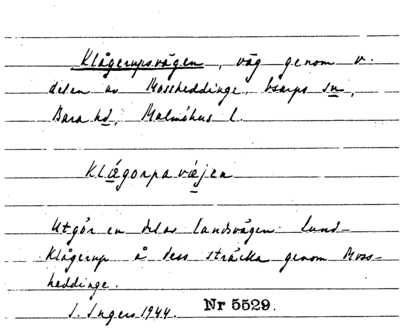 Klågerupsvägen, väg genom v.
delen av Mossheddinge, Esarps sn,
Bara hd, Malmöhus l.
Klægorpa væjen
Utgör en del av landsvägen Lund-
Klågerup å dess sträcka genom Moss-
heddinge.
I. Ingers 1944. Nr 5529.